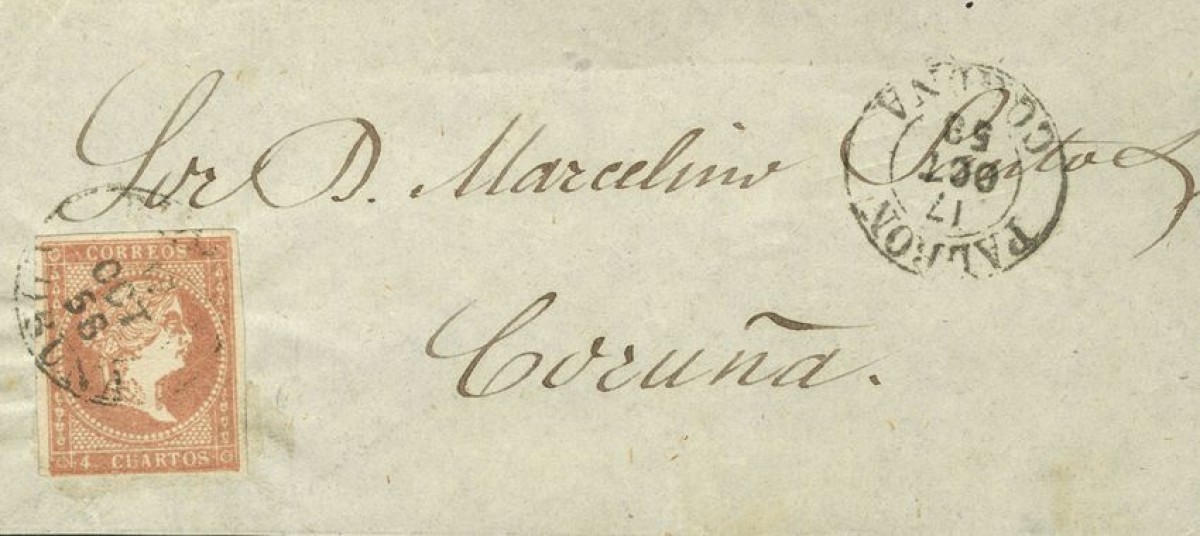 Sor D. Marcelino Souto
Coruña.
PADRON
17
OCT
58
CORUÑA
CORREOS
OCT
58
4 CUARTOS